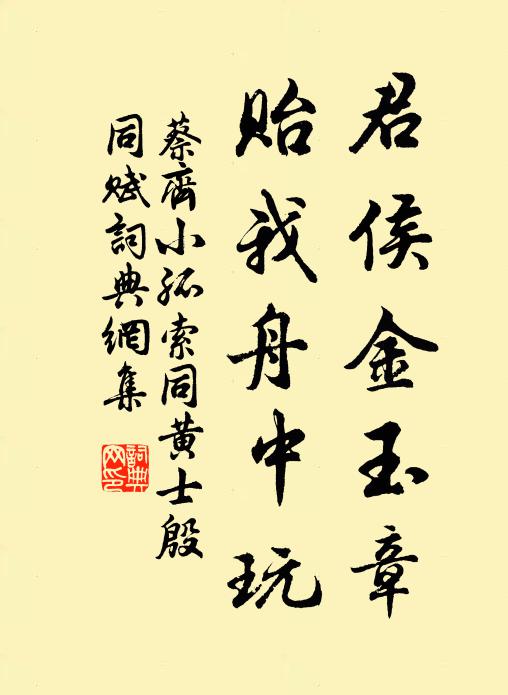 君侯金玉章
贻我舟中玩
蔡齊小孤索同黄士殷
同赋詞典網集
詞典
网印